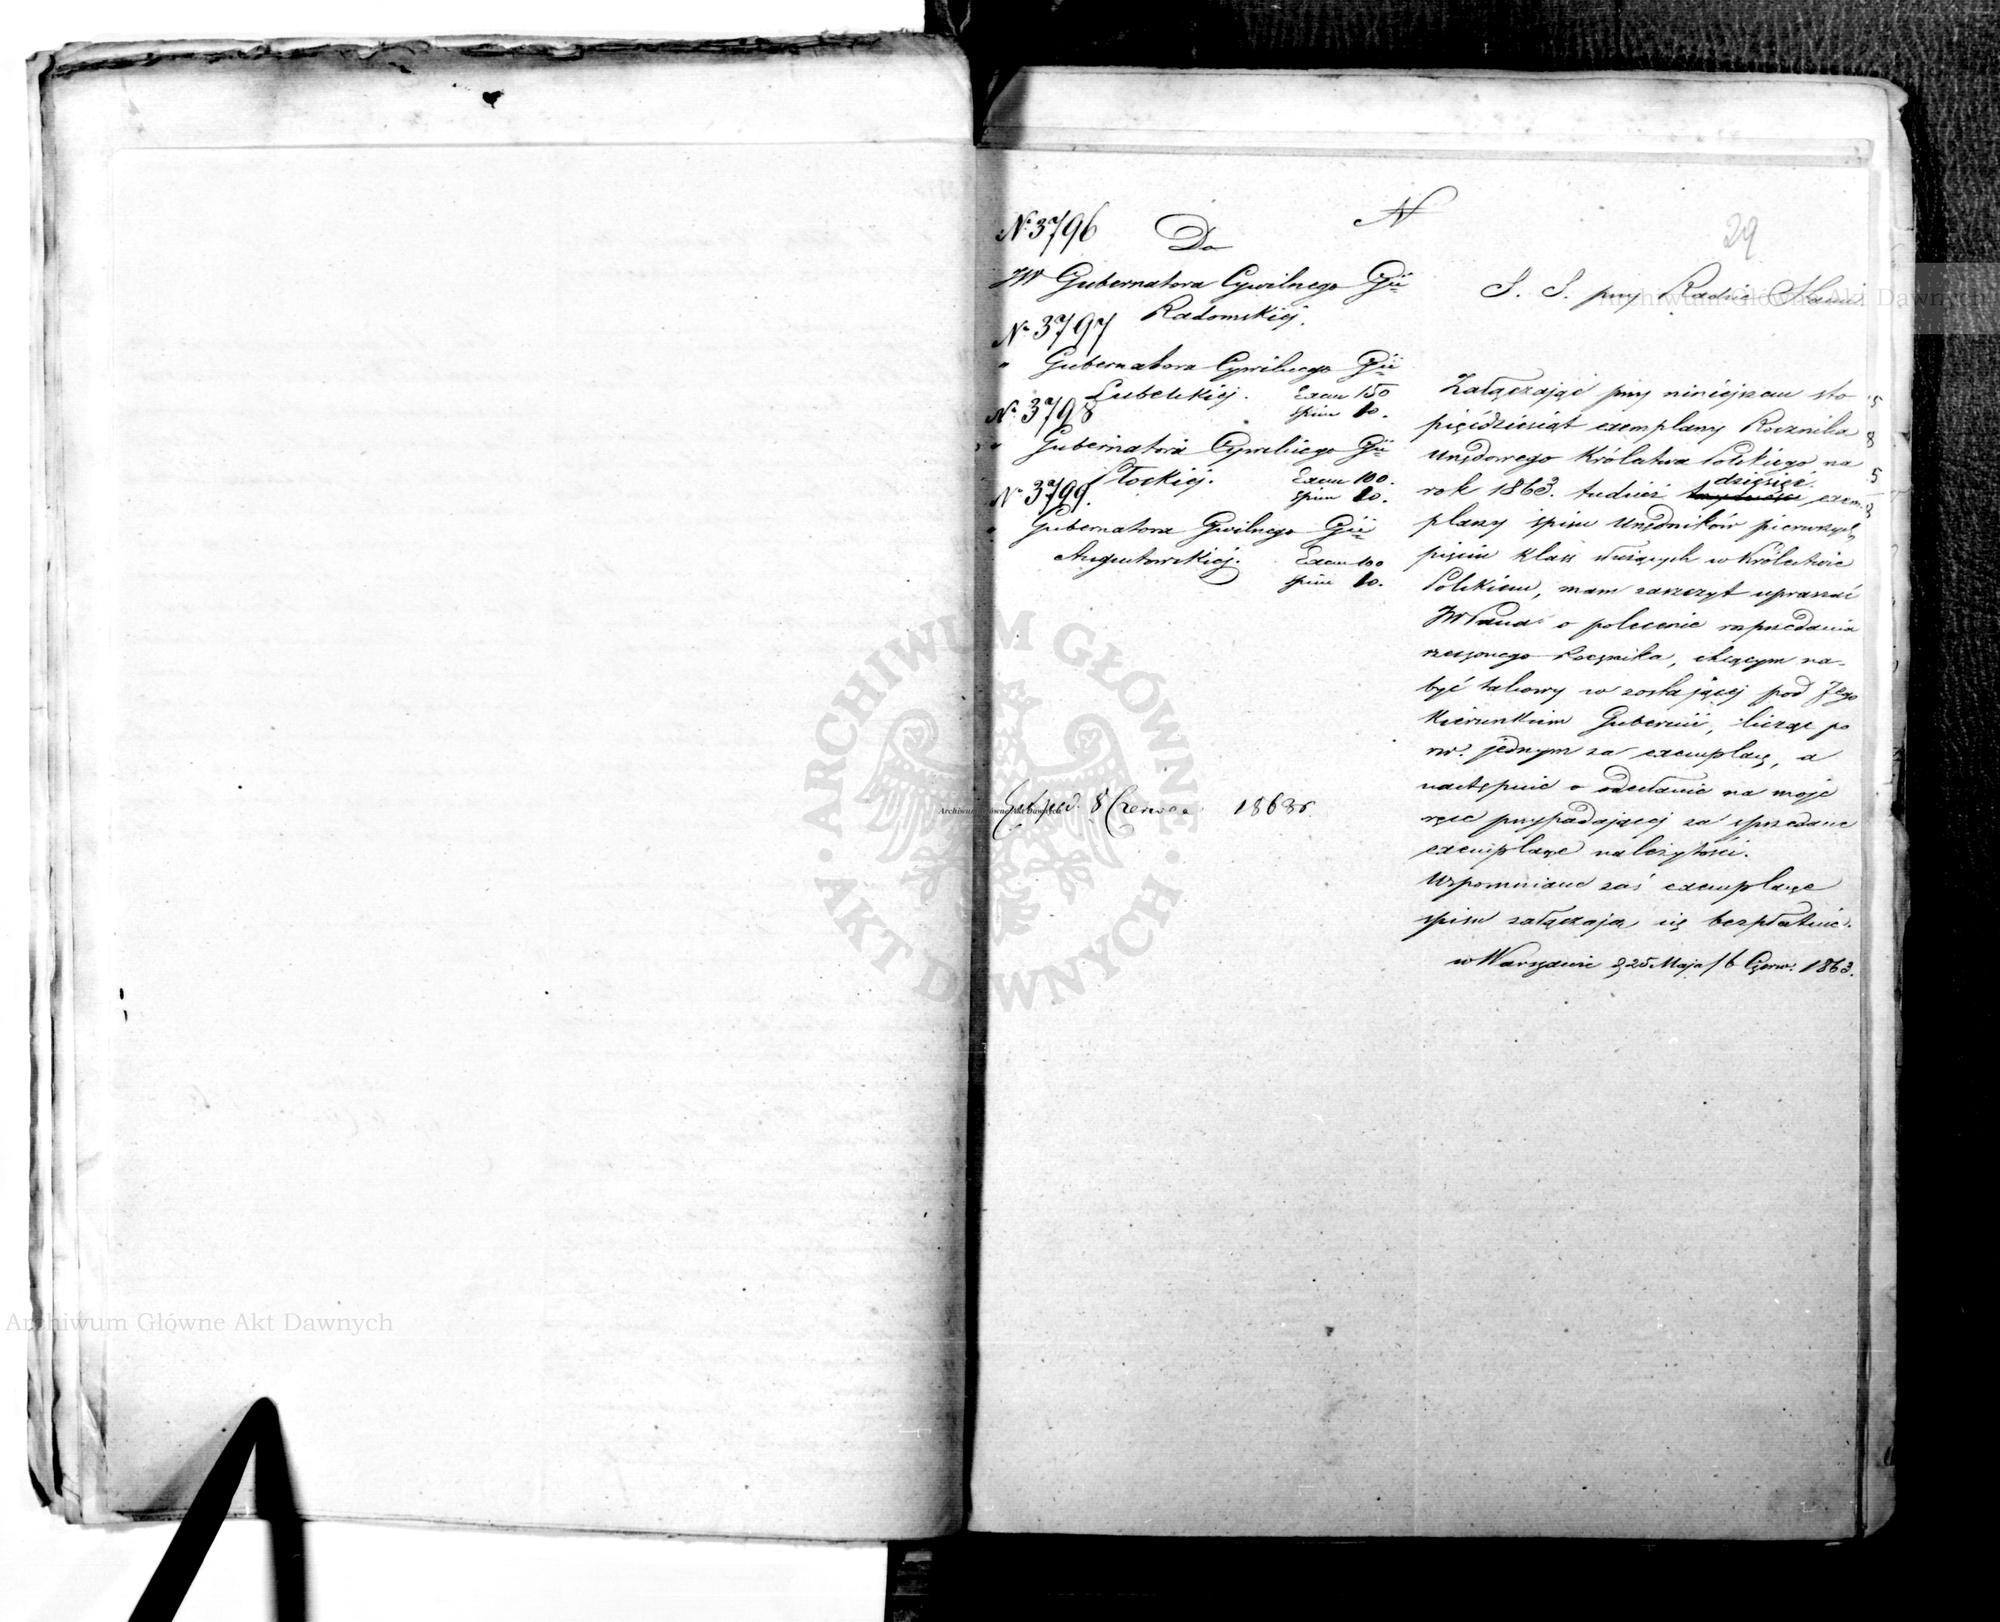 N
29
No 3796
Do
JW Gubernatora Cywilnego Gii
Radomskiej.
No 3797
" Gubernatora Cywilnego Gii
Lubelskiej. Exem 150
spisu 10.
No 3798
" Gubernatora Cywilnego Gii
Płockiej. Exem 100.
spisu 10.
No 3799.
" Gubernatora Cywilnego Gii
Augustowskiej. Exem 100
spisu 10.
Exped. 8 Czerwca 1863 r.
S. S. przy Radzie Stanu
Załączając przy niniejszem sto
pięćdziesiąt exemplarzy Rocznika
Urzędowego Królestwa Polskiego na
dziesięć
rok 1863. tudzież exem-
plarzy spisu Urzędników pierwszych
pięciu klass służących w Królestwie
Polskiem, mam zaszczyt upraszać
JW Pana o polecenie rozprzedania
rzeczonego Rocznika, chcącym na-
być takowy w zostającej pod Jego
Kierunkiem Gubernii, licząc po
rsr. jednym za exemplarz, a
następnie o odesłanie na moje
ręce przypadającej za sprzedane
exemplarze należytości.
Wspomniane zaś exemplarze
spisu załączają się bezpłatnie.
w Warszawie d 25 Maja / 6 Czerw. 1863.
Archiwum Główne Akt Dawnych
ARCHIWUM GŁÓWNE · AKT DAWNYCH ·
Archiwum Główne Akt Dawnych
Archiwum Główne Akt Dawnych